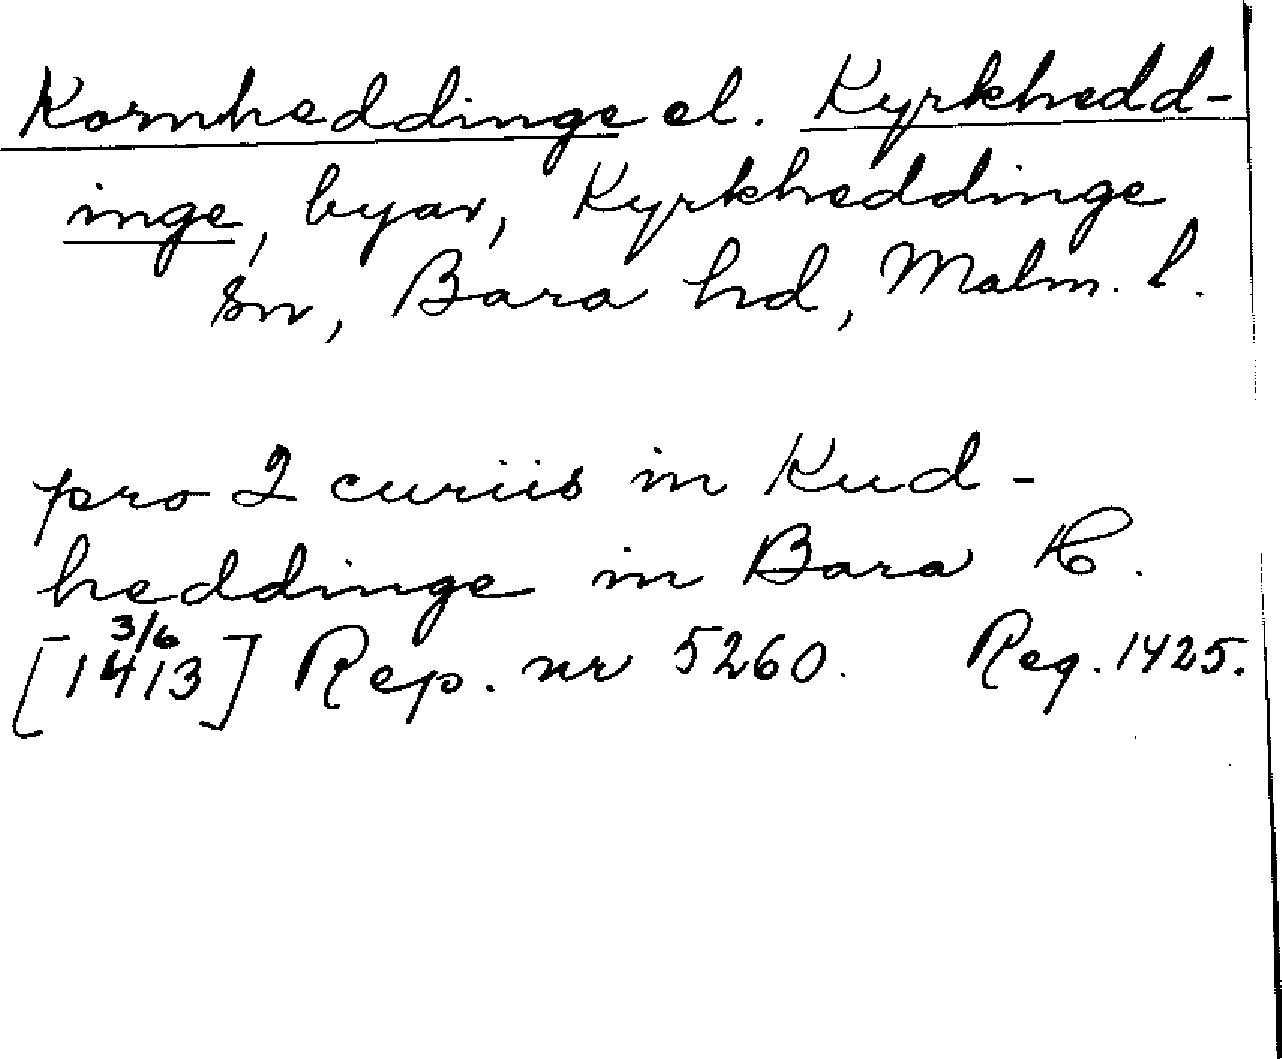 Kornheddinge el. Kyrkhedd-
inge, byar, Kyrkheddinge
sn, Bara hd, Malm. l.
pro 2 curiis in Kud-
heddinge in Bara H.
3/6
[1413] Rep. nr 5260. Reg. 1425.